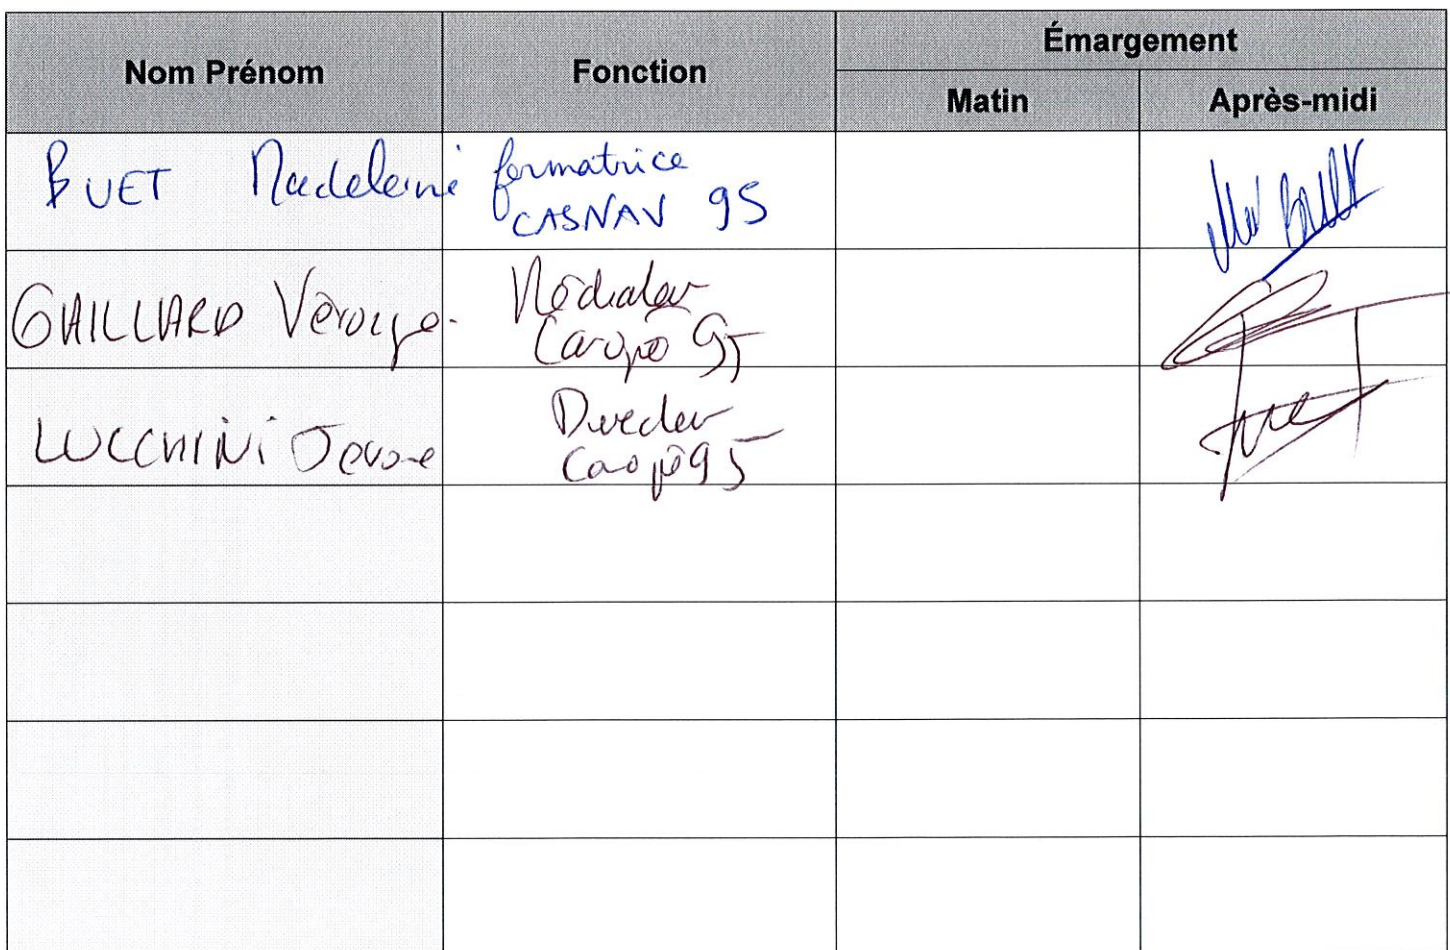 Nom Prénom
Fonction
Émargement
Matin
Après-midi
BUET Madeleine
formatrice
CASNAV 95
GAILLARD
Médiateur
Canopé 95
LUCCHINI Jerome
Directeur
Canopé 95